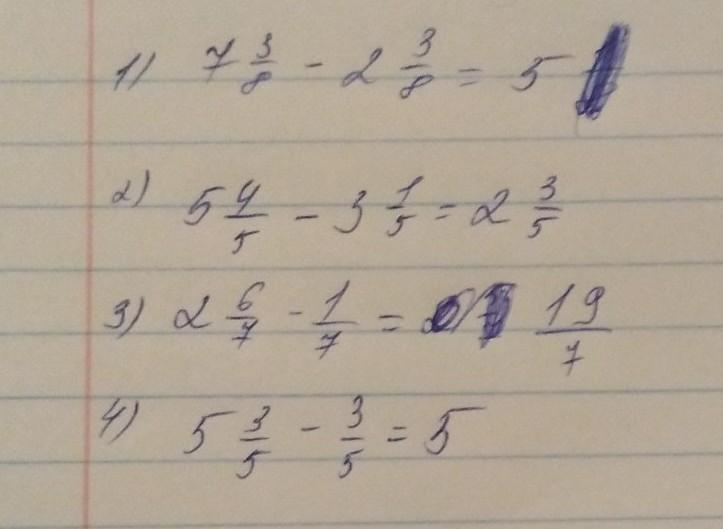 1) 7 3/8 - 2 3/8 = 5
2) 5 4/5 - 3 1/5 = 2 3/5
3) 2 6/7 - 1/7 = 19/7
4) 5 3/5 - 3/5 = 5